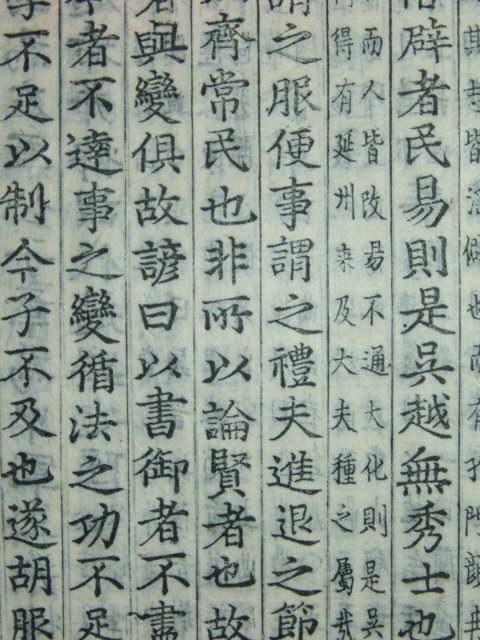 其志皆淫僻也而有孔門顏冉
俗辟者民易則是吳越無秀士也
而人皆改易不通大化則是吳
得有延州来及大夫種之屬哉
謂之服便事謂之禮夫進退之節
以齊常民也非所以論賢者也故
者與變俱故諺曰以書御者不盡
者不達事之變循法之功不足
學不足以制今子不及也遂胡服